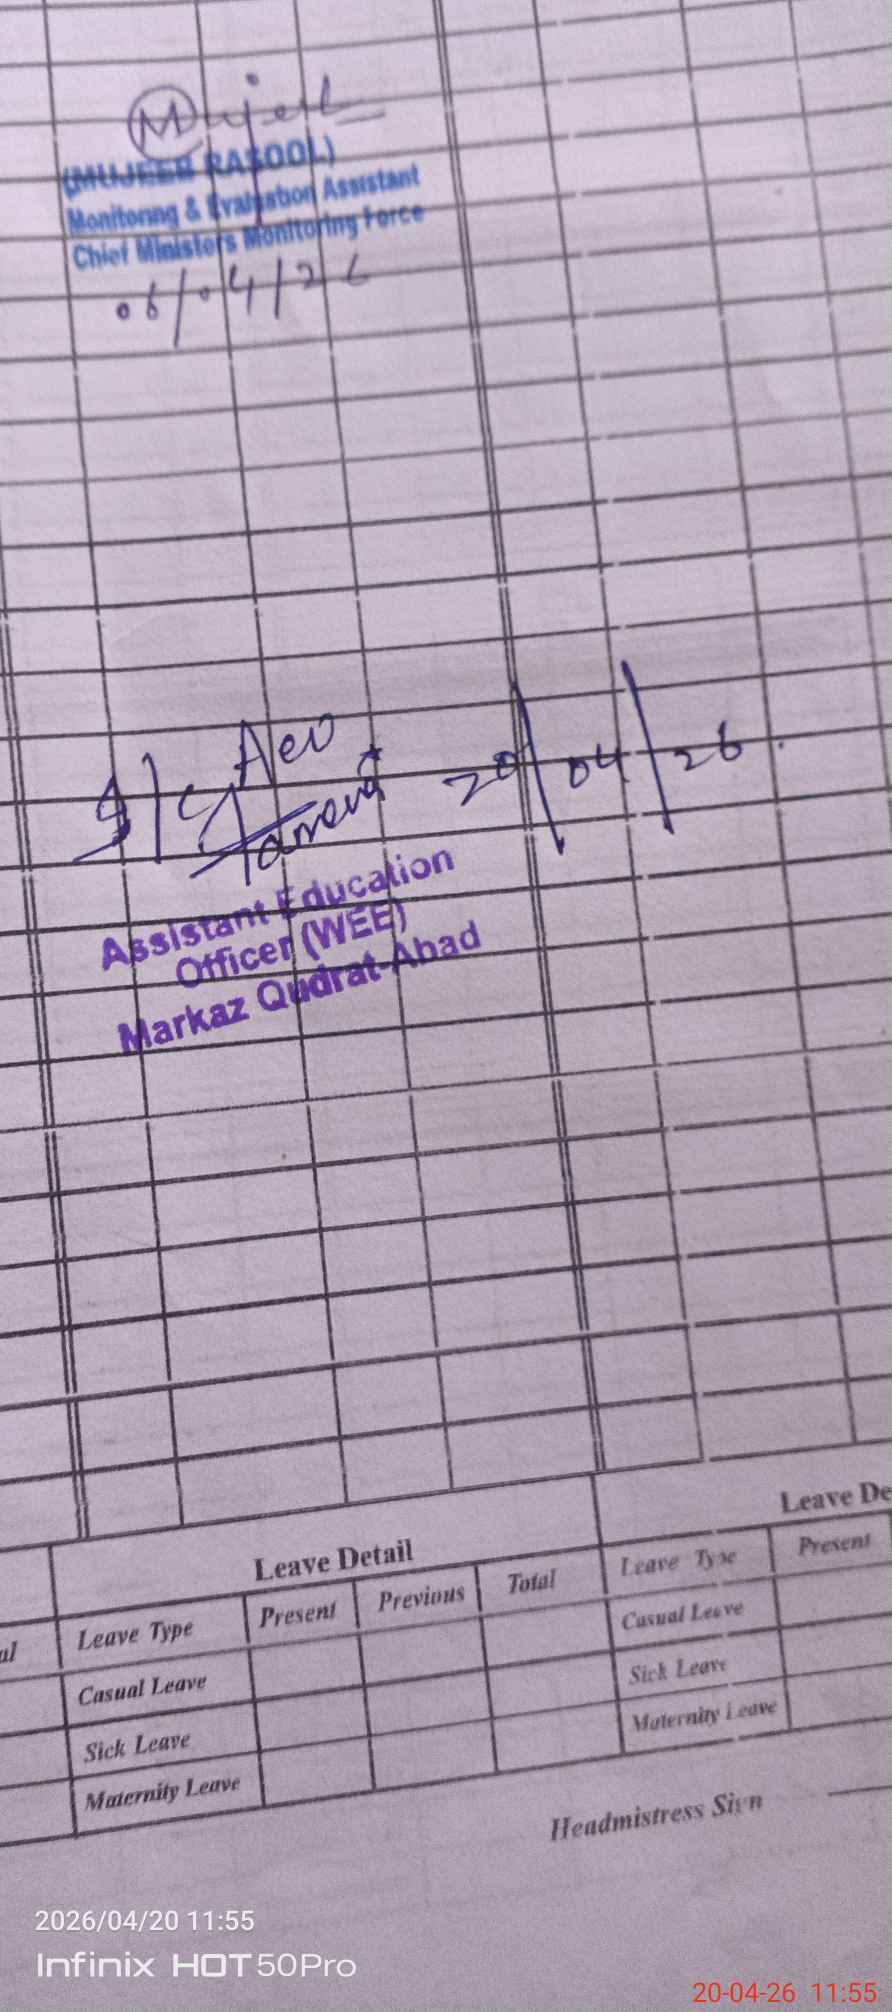 Mujeeb
(MUJEEB RASOOL)
Monitoring & Evaluation Assistant
Chief Ministers Monitoring Force
06/04/26
Aeo
20/04/26
Assistant Education
Officer (WEE)
Markaz Qudrat-Abad
Leave Detail
Leave Type Present Previous Total
Casual Leave
Sick Leave
Maternity Leave
Leave De
Leave Type Present
Casual Leave
Sick Leave
Maternity Leave
al
Headmistress Sign
2026/04/20 11:55
Infinix HOT 50Pro
20-04-26 11:55